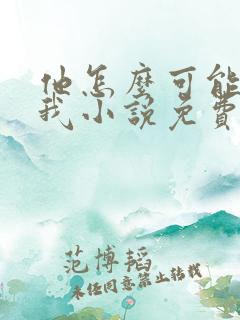 他怎麼可能
我小說免費
范博韜
未经同意禁止转载